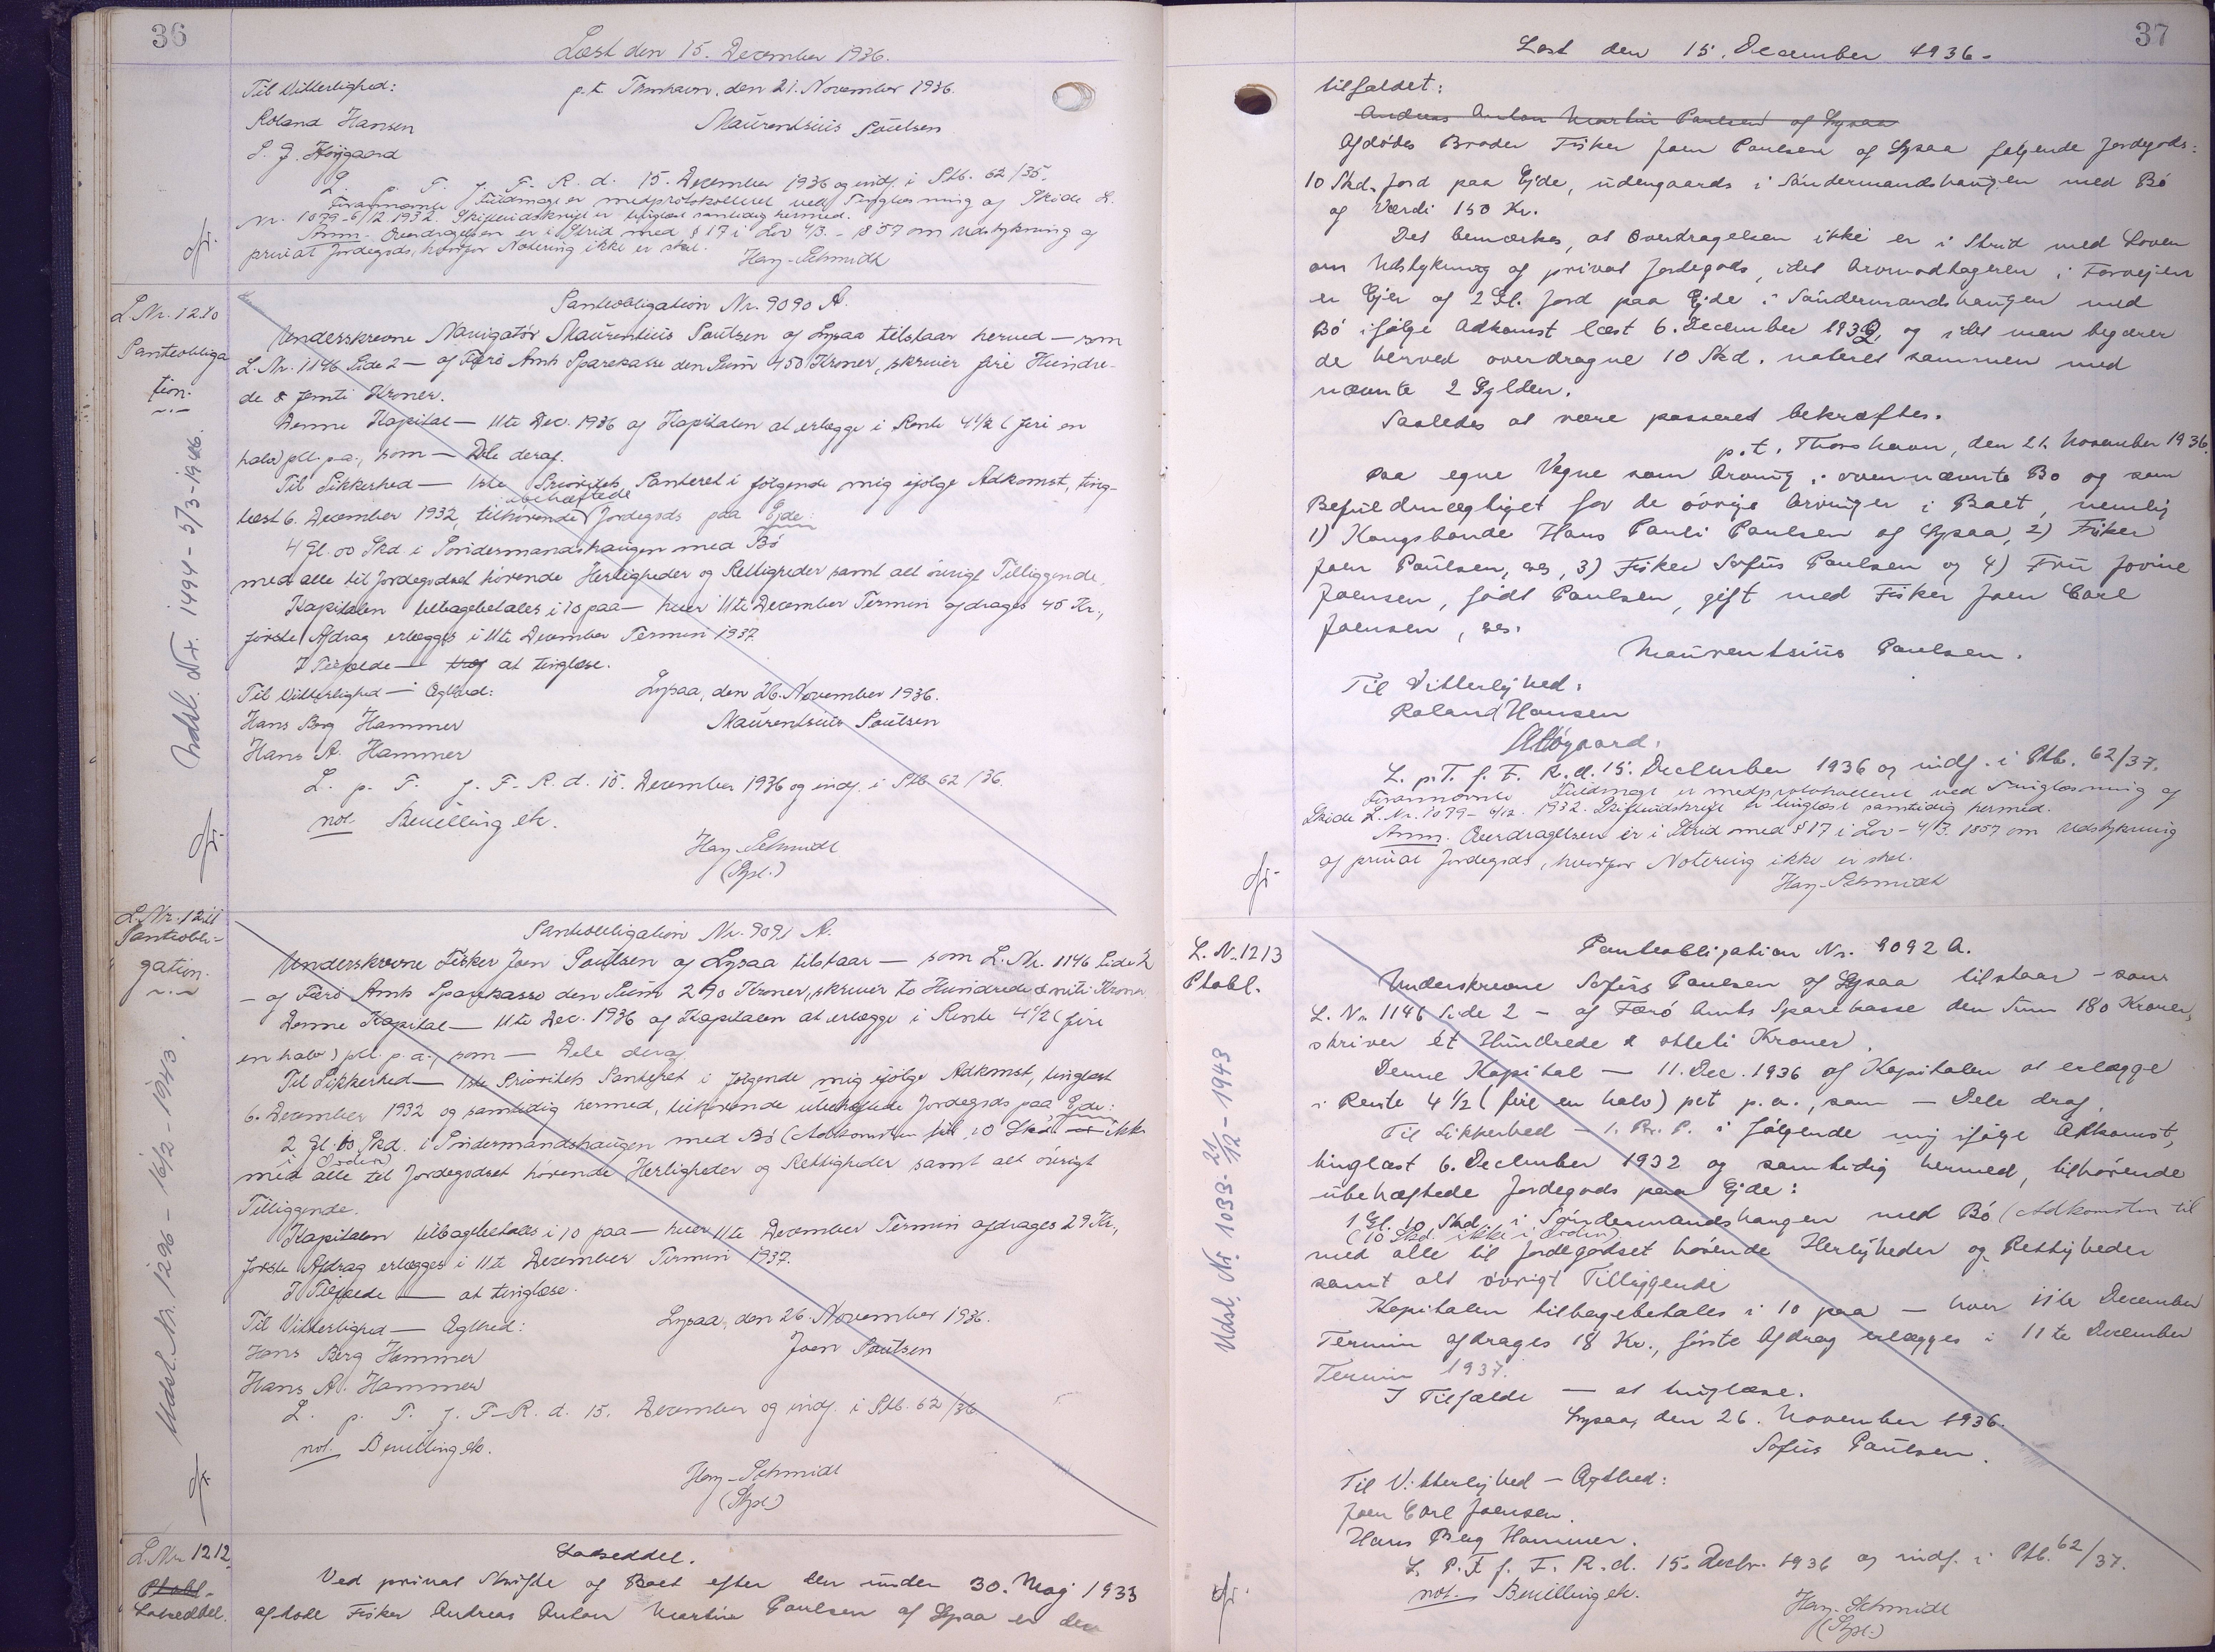 36
Læst den 15. December 1936.
Til Vitterlighed:
p.t. Thorshavn, den 21. November 1936.
Roland Hansen
Maurentsius Poulsen
L. p. T. f. F. R. d. 15. December 1936 og indf. i Ptb. 62/35.
Forannævnte Fuldmagt er medprotokolleret ved Tinglæsning af Skøde L.
Nr. 1079-6/12 1932. Skifteudskrift er tinglæst samtidig hermed.
Anm. Overdragelsen er i Strid med § 17 i Lov 4/3 - 1857 om Udstykning af
privat Jordegods, hvorfor Notering ikke er sket.
Hay-Schmidt
L. Nr. 1210
Panteobliga
tion.
Udsl. Nr. 1494 - 5/3 - 1946.
Panteobligation Nr. 9090 A.
Underskrevne Navigatør Maurentsius Poulsen af Lysaa tilstaar herved — som
L. Nr. 1146 Side 2 — af Færø Amts Sparekasse den Sum 450 Kroner, skriver fire Hundre-
de & femti Kroner.
Denne Kapital — 11te Dec. 1936 af Kapitalen at erlægge i Rente 4 1/2 (fire en
halv) pCt. p.a., som — Dele deraf.
Til Sikkerhed — 1ste Prioritets Panteret i følgende mig ifølge Adkomst, ting-
læst 6. December 1932, tilhørende ubehæftede Jordegods paa Ejde:
4 Gl. 00 Skd. i Søndermandshaugen med Bø
med alle til Jordegodset hørende Herligheder og Rettigheder samt alt øvrigt Tilliggende.
Kapitalen tilbagebetales i 10 paa — hver 11te December Termin afdrages 45 Kr.,
første Afdrag erlægges i 11te December Termin 1937.
I Tilfælde — at tinglæse.
Til Vitterlighed — Ægthed:
Lysaa, den 26. November 1936.
Hans Berg Hammer
Maurentsius Poulsen
Hans A. Hammer
L. p. T. f. F. R. d. 15. December 1936 og indf. i Ptb. 62/36.
not. Bevilling etc.
Hay-Schmidt
(Stpl.)
L. Nr. 1211
Panteobli-
gation.
Udsl. Nr. 1296 - 16/2 - 1943.
Panteobligation Nr. 9091 A.
Underskrevne Fisker Joen Poulsen af Lysaa tilstaar — som L. Nr. 1146 Side 2
— af Færø Amts Sparekasse den Sum 290 Kroner, skriver to Hundrede & niti Kroner
Denne Kapital — 11te Dec. 1936 af Kapitalen at erlægge i Rente 4 1/2 (fire
en halv) pCt. p.a., som — Dele deraf.
Til Sikkerhed — 1ste Prioritets Panteret i følgende mig ifølge Adkomst, tinglæst
6. December 1932 og samtidig hermed, tilhørende ubehæftede Jordegods paa Ejde:
2 Gl. 10 Skd. i Søndermandshaugen med Bø (Adkomsten til 10 Skd. ikke
i Orden)
med alle til Jordegodset hørende Herligheder og Rettigheder samt alt øvrigt
Tilliggende.
Kapitalen tilbagebetales i 10 paa — hver 11te December Termin afdrages 29 Kr.,
første Afdrag erlægges i 11te December Termin 1937.
I Tilfælde — at tinglæse.
Til Vitterlighed — Ægthed:
Lysaa, den 26. November 1936.
Hans Berg Hammer
Joen Poulsen
Hans A. Hammer
L. p. T. f. F. R. d. 15. December og indf. i Ptb. 62/36
not. Bevilling etc.
Hay-Schmidt
(Stpl.)
L. Nr. 1212
Ptobl.
Lodseddel.
Lodseddel.
Ved privat Skifte af Boet efter den under 30. Maj 1933
afdøde Fisker Andreas Anton Martin Paulsen af Lysaa er der
37
Læst den 15. December 1936.
tilfaldet:
Andreas Anton Martin Paulsen af Lysaa
Afdødes Broder Fisker Joen Paulsen af Lysaa følgende Jordegods:
10 Skd. Jord paa Ejde, udengaards i Søndermandshaugen med Bø
og Værdi 150 Kr.
Det bemærkes, at Overdragelsen ikke er i Strid med Loven
om Udstykning af privat Jordegods, idet Arvemodtageren i Forvejen
er Ejer af 2 Gl. Jord paa Ejde i Søndermandshaugen med
Bø ifølge Adkomst læst 6. December 1932, og idet man begærer
de herved overdragne 10 Skd. noteret sammen med
nævnte 2 Gylden.
Saaledes at være passeret bekræftes.
p.t. Thorshavn, den 21. November 1936.
Paa egne Vegne som Arving i ovennævnte Bo og som
Befuldmægtiget for de øvrige Arvinger i Boet, nemlig
1) Kongsbonde Hans Pauli Paulsen af Lysaa, 2) Fisker
Joen Paulsen, ses, 3) Fisker Sofus Paulsen og 4) Fru Jovine
Joensen, født Paulsen, gift med Fisker Joen Carl
Joensen, ses.
Maurentsius Paulsen.
Til Vitterlighed:
Roland Hansen
L. p. T. f. F. R. d. 15. December 1936 og indf. i Ptb. 62/37.
Forannævnte Fuldmagt er medprotokolleret ved Tinglæsning af
Skøde L. Nr. 1079 - 6/12 1932. Skifteudskrift er tinglæst samtidig hermed.
Anm. Overdragelsen er i Strid med § 17 i Lov - 4/3 1857 om Udstykning
af privat Jordegods, hvorfor Notering ikke er sket.
Hay-Schmidt
L. Nr. 1213
Ptobl.
Udsl. Nr. 1033 - 21/12 - 1943
Panteobligation Nr. 9092 A.
Underskrevne Sofus Paulsen af Lysaa tilstaar - som
L. Nr. 1146 Side 2 - af Færø Amts Sparekasse den Sum 180 Kroner,
skriver ét Hundrede & otteti Kroner.
Denne Kapital — 11. Dec. 1936 af Kapitalen at erlægge
i Rente 4 1/2 (fire en halv) pct p.a., som — Dele draf.
Til Sikkerhed - 1. Pr. P. i følgende mig ifølge Adkomst,
tinglæst 6. December 1932 og samtidig hermed, tilhørende
ubehæftede Jordegods paa Ejde:
1 Gl. 10 Skd. i Søndermandshaugen med Bø (Adkomsten til
(10 Skd. ikke i Orden)
med alle til Jordegodset hørende Herligheder og Rettigheder
samt alt øvrigt Tilliggende
Kapitalen tilbagebetales i 10 paa — hver 11te December
Termin afdrages 18 Kr., første Afdrag erlægges i 11te December
Termin 1937.
I Tilfælde — at tinglæse.
Lysaa, den 26. November 1936.
Sofus Paulsen.
Til Vitterlighed — Ægthed:
Joen Carl Joensen.
Hans Berg Hammer.
L. P. T. f. F. R. d. 15. Decbr. 1936 og indf. i Ptb. 62/37.
not. Bevilling etc.
Hay-Schmidt
(Stpl.)